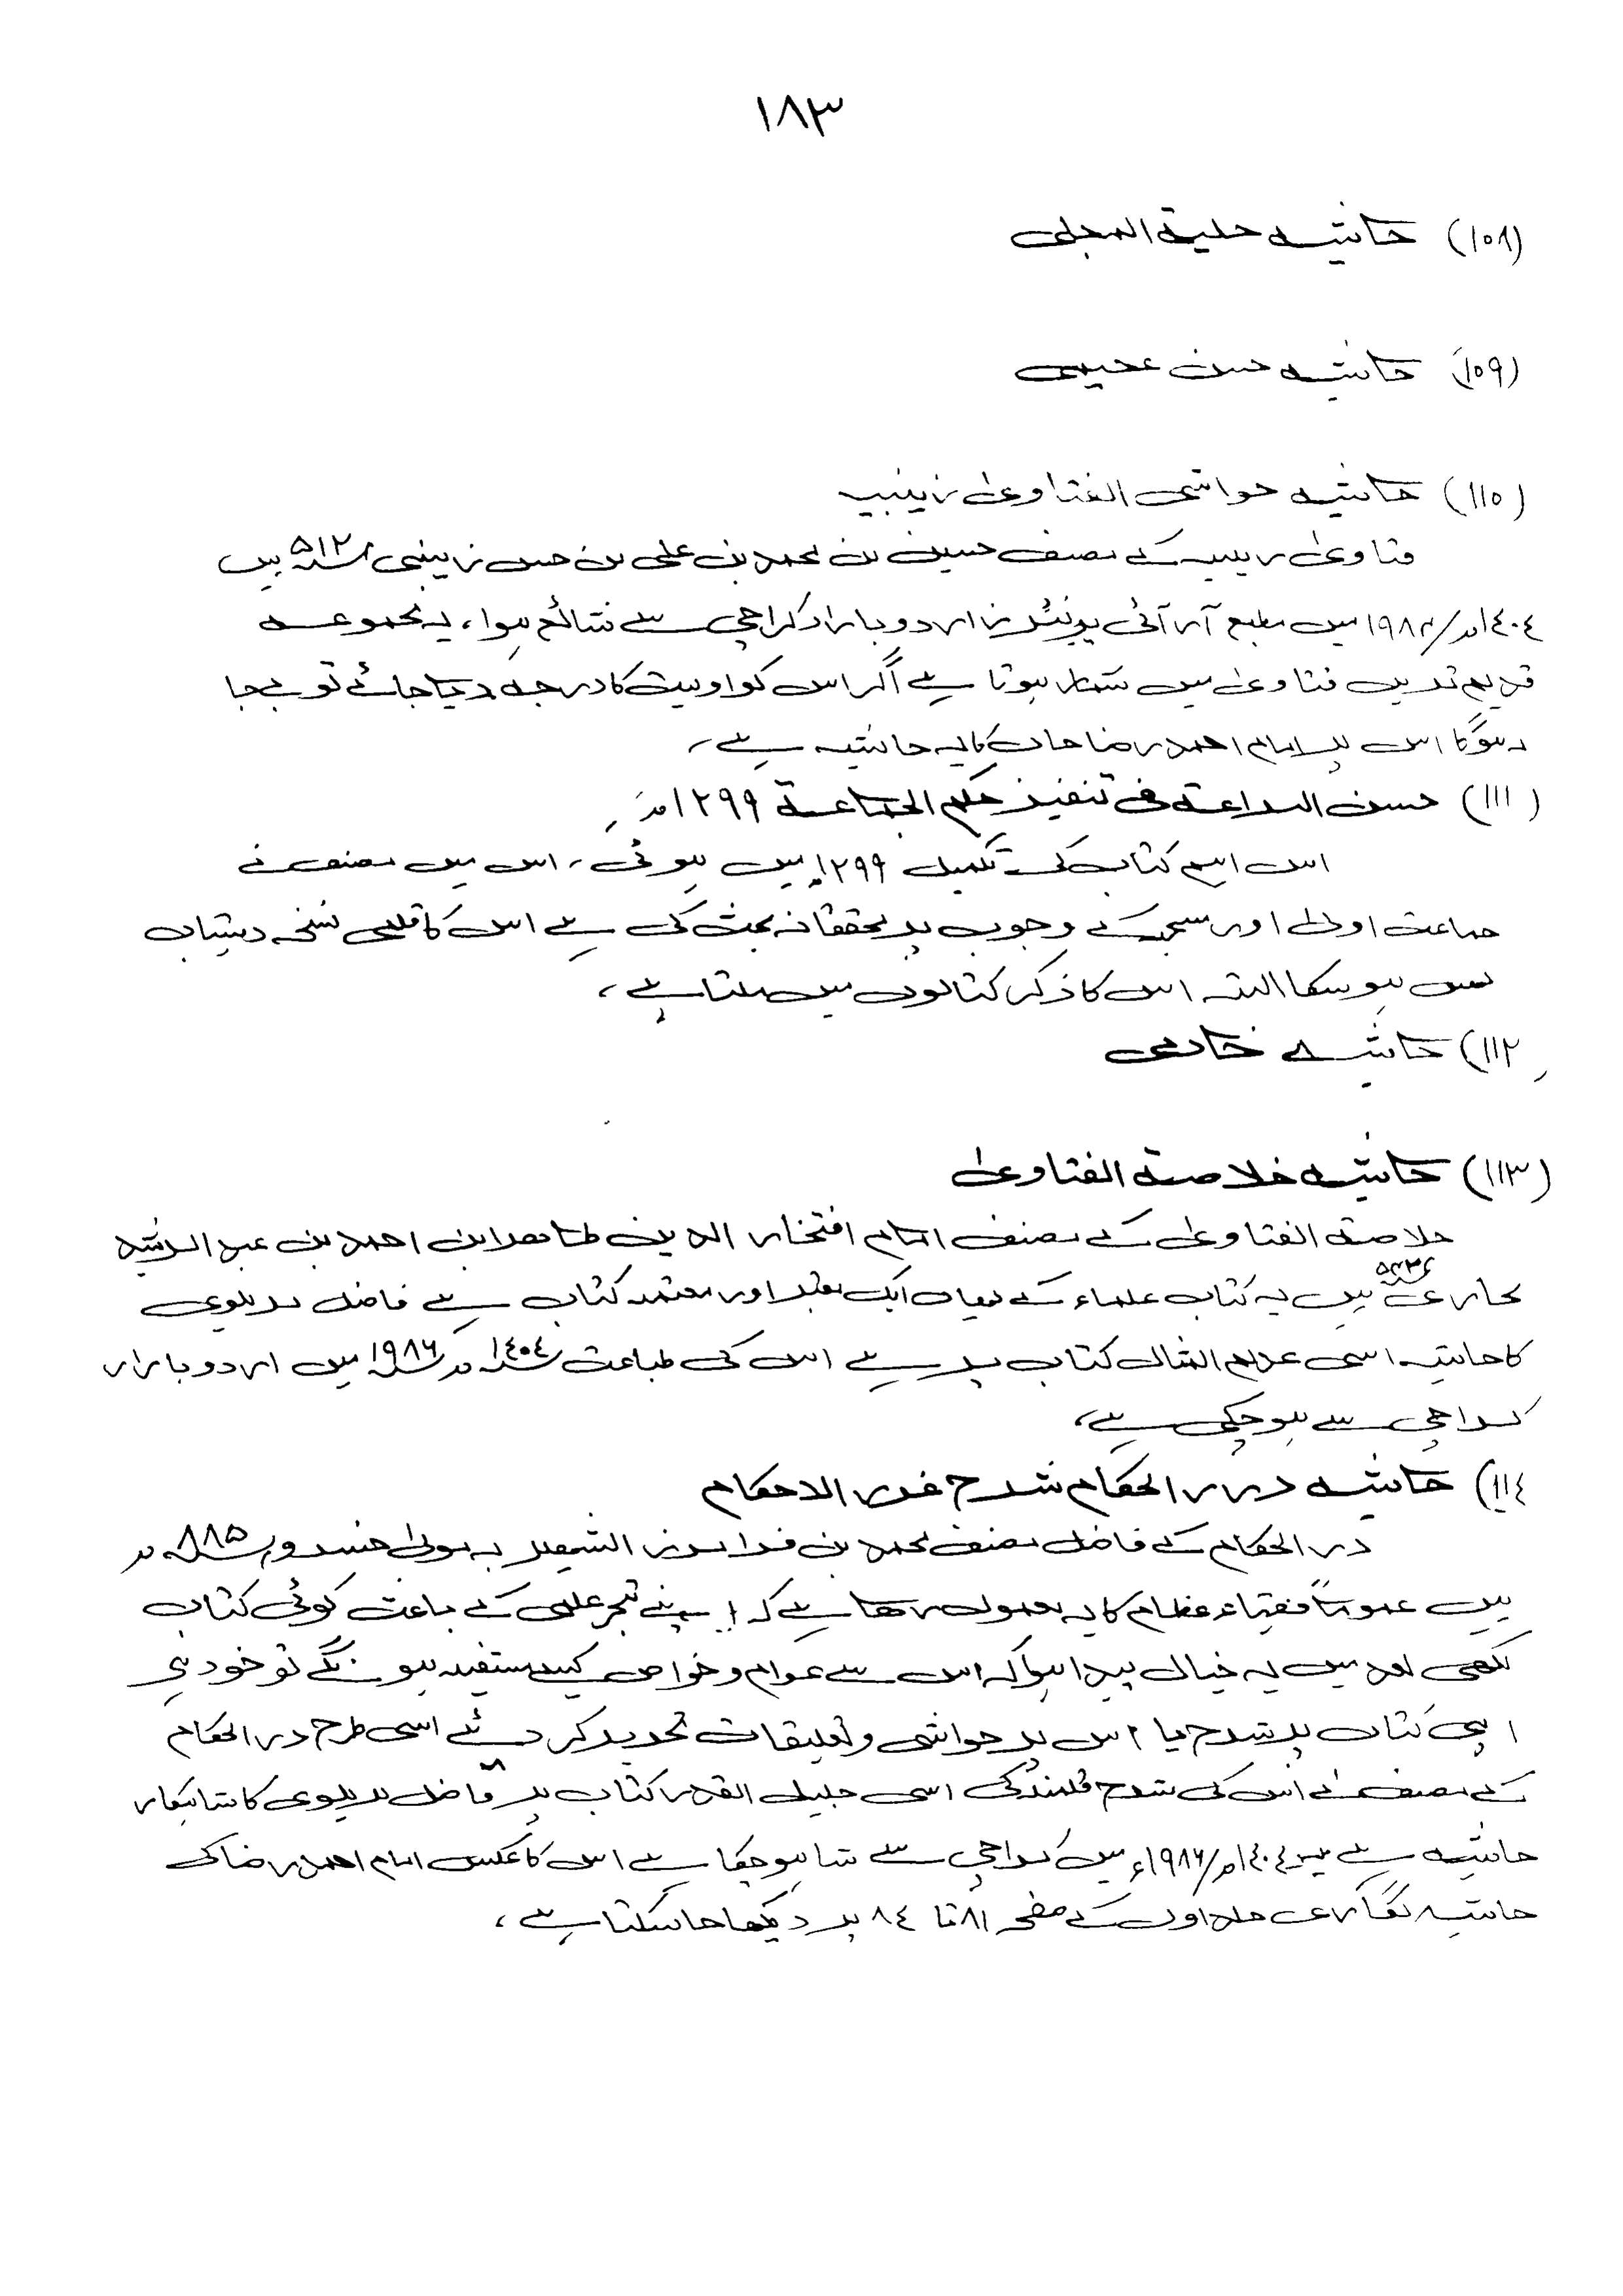 ١٨٣
(١٠٨) حاشیہ حلیۃ المجلی
(١٠٩) حاشیہ حسن عجیمی
(١١٠) حاشیہ حواشی الفتاویٰ زینبیہ
فتاویٰ زینبیہ کے مصنف حسین بن محمد بن علی بن حسن زینبی ٥١٢ھ ہیں
١٤٠٤ھ/١٩٨٤ میں مطبع آر آئی پرنٹرز اردو بازار کراچی سے شائع ہوا، یہ مجموعہ
قدیم ترین فتاویٰ میں شمار ہوتا ہے اگر اس کو اولیت کا درجہ دیا جائے تو بے جا
نہ ہوگا اس پر امام احمد رضا خاں کا یہ حاشیہ ہے،
(١١١) حسن البراعۃ فی تنفیذ حکم الجماعۃ ١٢٩٩ھ،
اس اہم کتاب کی تکمیل ١٢٩٩ھ میں ہوئی، اس میں مصنف نے
جماعت اولیٰ اور مسجد کے وجوب پر محققانہ بحث کی ہے اس کا قلمی نسخہ دستیاب
نہیں ہو سکا البتہ اس کا ذکر کتابوں میں ملتا ہے،
(١١٢) حاشیہ خادمی
(١١٣) حاشیہ خلاصۃ الفتاویٰ
خلاصۃ الفتاویٰ کے مصنف امام افتخار الدین طاہر ابن احمد بن عبد الرشید
بخاری ہیں یہ کتاب علماء کے یہاں ایک معتبر اور معتمد کتاب ہے فاضل بریلوی
کا حاشیہ اسی عدیم المثال کتاب پر ہے اس کی طباعت ١٤٠٤ھ ١٩٨٦ میں اردو بازار
کراچی سے ہو چکی ہے،
(١١٤) حاشیہ درر الحکام شرح غرر الاحکام
درر الحکام کے فاضل مصنف محمد بن فرامرز الشہیر بہ مولی خسرو ٨٨٥ھ
ہیں عموماً فقہاء عظام کا یہ معمول رہا ہے کہ اپنے تبحر علمی کے باعث کوئی کتاب
لکھی بعد میں یہ خیال پیدا ہوا کہ اس سے عوام و خواص کیسے مستفید ہونگے تو خود ہی
اپنی کتاب پر شرح یا اس پر حواشی و تعلیقات تحریر کر دیئے اسی طرح درر الحکام
کے مصنف نے اس کی شرح قلمبند کی اسی جلیل القدر کتاب پر فاضل بریلوی کا شاہکار
حاشیہ ہے ١٤٠٤ھ/١٩٨٦ء میں کراچی سے شا ہو چکا ہے اس کا عکس امام احمد رضا کی
حاشیہ نگاری جلد اول کے صفحہ ٨١ تا ٨٤ پر دیکھا جا سکتا ہے،